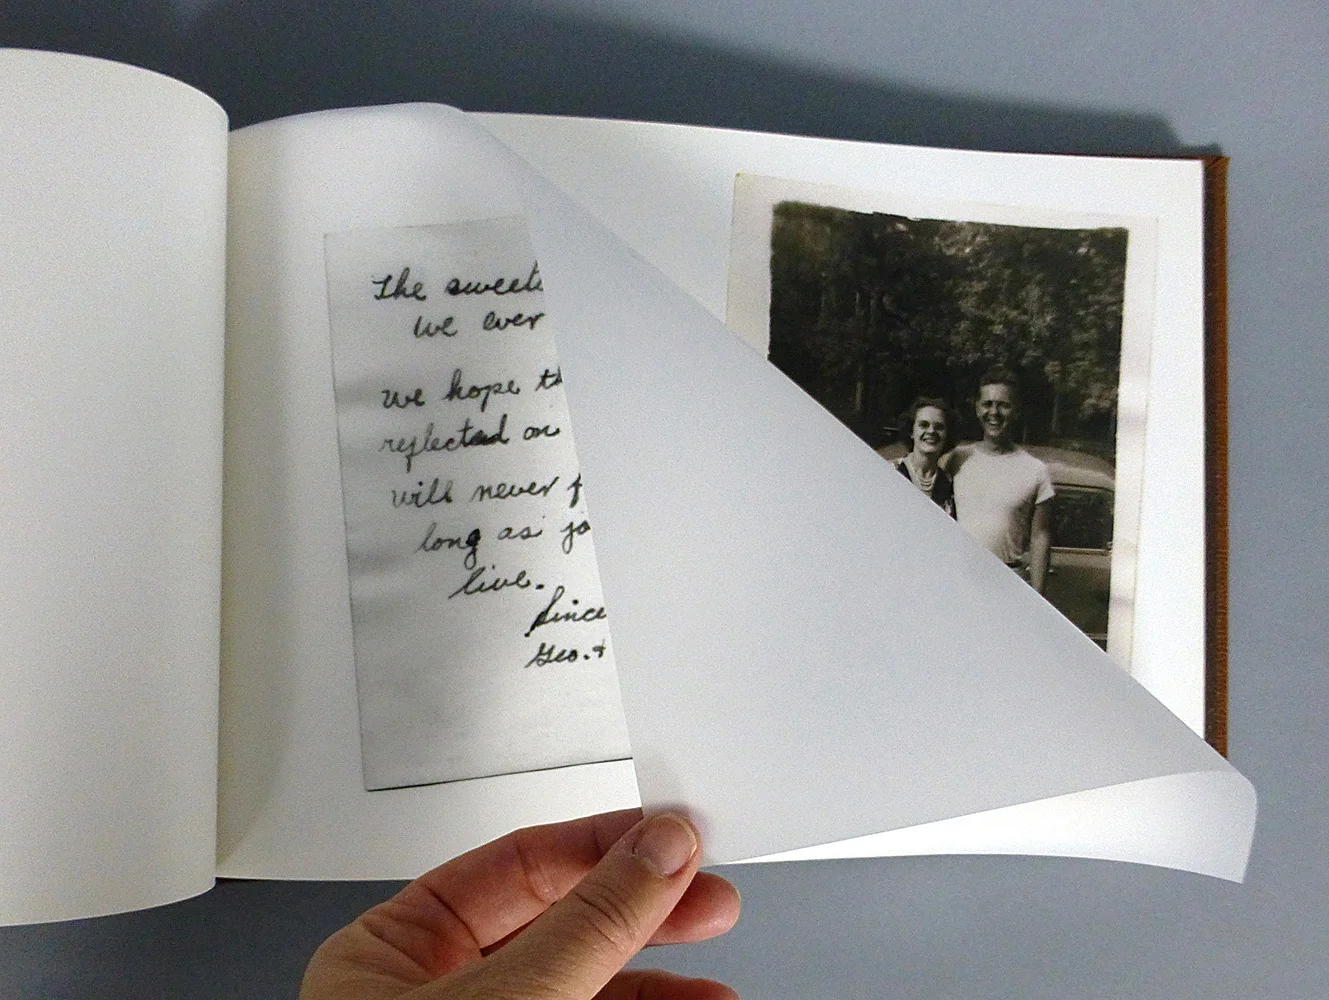 The sweete
we ever
we hope th
reflected on
will never f
long as yo
live.
Since
Geo. +